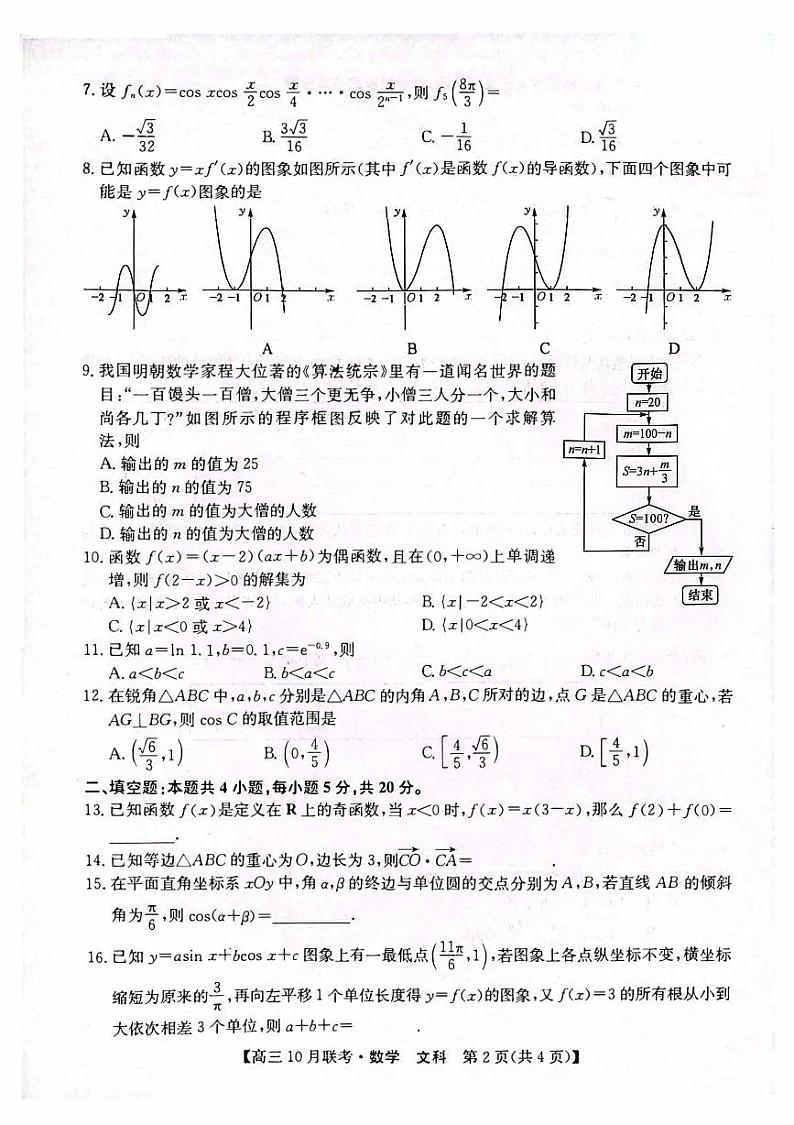 7. 设 fₙ(x)=cos xcos x/2 cos x/4 ·…· cos x/2ⁿ⁻¹,则 f₅(8π/3)=
A. -√3/32 B. 3√3/16 C. -1/16 D. √3/16
8. 已知函数 y=xf′(x)的图象如图所示(其中 f′(x)是函数 f(x)的导函数),下面四个图象中可
能是 y=f(x)图象的是
y y y y y
-2 -1 O 1 2 x -2 -1 O 1 2 x -2 -1 O 1 2 x -2 -1 O 1 2 x -2 -1 O 1 2 x
A B C D
9. 我国明朝数学家程大位著的《算法统宗》里有一道闻名世界的题
目:“一百馒头一百僧,大僧三个更无争,小僧三人分一个,大小和
尚各几丁?”如图所示的程序框图反映了对此题的一个求解算
法,则
A. 输出的 m 的值为 25
B. 输出的 n 的值为 75
C. 输出的 m 的值为大僧的人数
D. 输出的 n 的值为大僧的人数
开始
n=20
m=100-n
n=n+1
S=3n+m/3
S=100?
是
否
输出m,n
结束
10. 函数 f(x)=(x-2)(ax+b)为偶函数,且在(0,+∞)上单调递
增,则 f(2-x)>0 的解集为
A. {x|x>2 或 x<-2} B. {x|-2<x<2}
C. {x|x<0 或 x>4} D. {x|0<x<4}
11. 已知 a=ln 1.1,b=0.1,c=e⁻⁰·⁹,则
A. a<b<c B. b<a<c C. b<c<a D. c<a<b
12. 在锐角△ABC 中,a,b,c 分别是△ABC 的内角 A,B,C 所对的边,点 G 是△ABC 的重心,若
AG⊥BG,则 cos C 的取值范围是
A. (√6/3,1) B. (0,4/5) C. [4/5,√6/3) D. [4/5,1)
二、填空题:本题共 4 小题,每小题 5 分,共 20 分。
13. 已知函数 f(x)是定义在 R 上的奇函数,当 x<0 时,f(x)=x(3-x),那么 f(2)+f(0)=
________.
14. 已知等边△ABC 的重心为 O,边长为 3,则CO·CA=        .
15. 在平面直角坐标系 xOy 中,角 α,β 的终边与单位圆的交点分别为 A,B,若直线 AB 的倾斜
角为π/6,则 cos(α+β)=________.
16. 已知 y=asin x+bcos x+c 图象上有一最低点(11π/6,1),若图象上各点纵坐标不变,横坐标
缩短为原来的3/π,再向左平移 1 个单位长度得 y=f(x)的图象,又 f(x)=3 的所有根从小到
大依次相差 3 个单位,则 a+b+c=        .
【高三 10 月联考·数学 文科 第 2 页(共 4 页)】